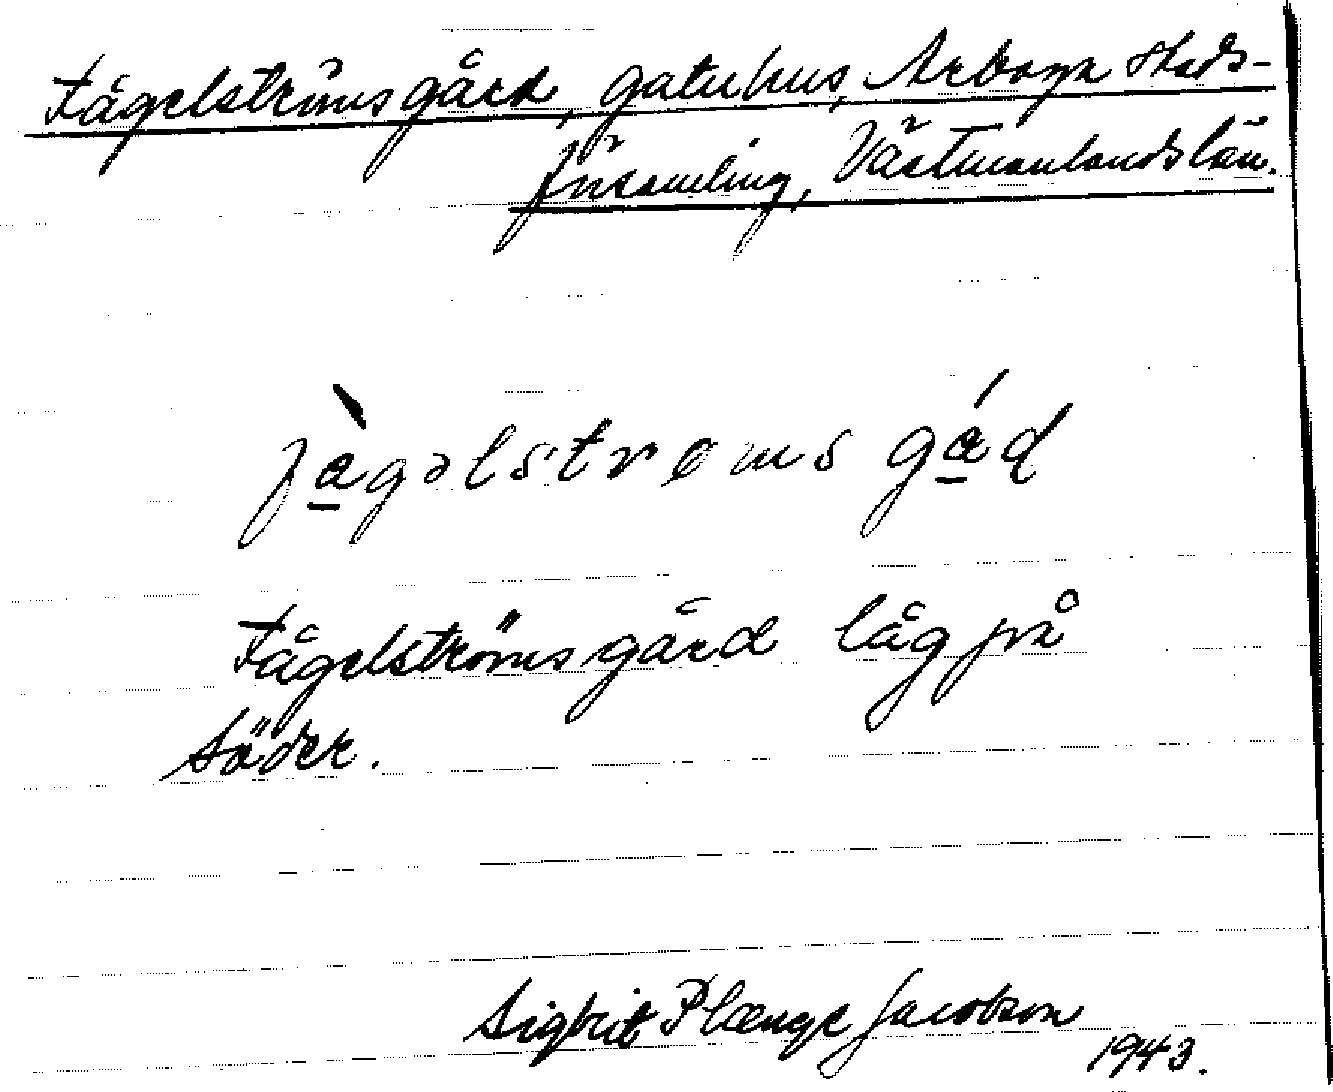 Fågelströms gård, gatuhus, Arboga stads-
församling, Västmanlands län.
fàgəlstroms gád
Fågelströms gård låg på
söder.
Sigbrit Plænge Jacobson
1943.